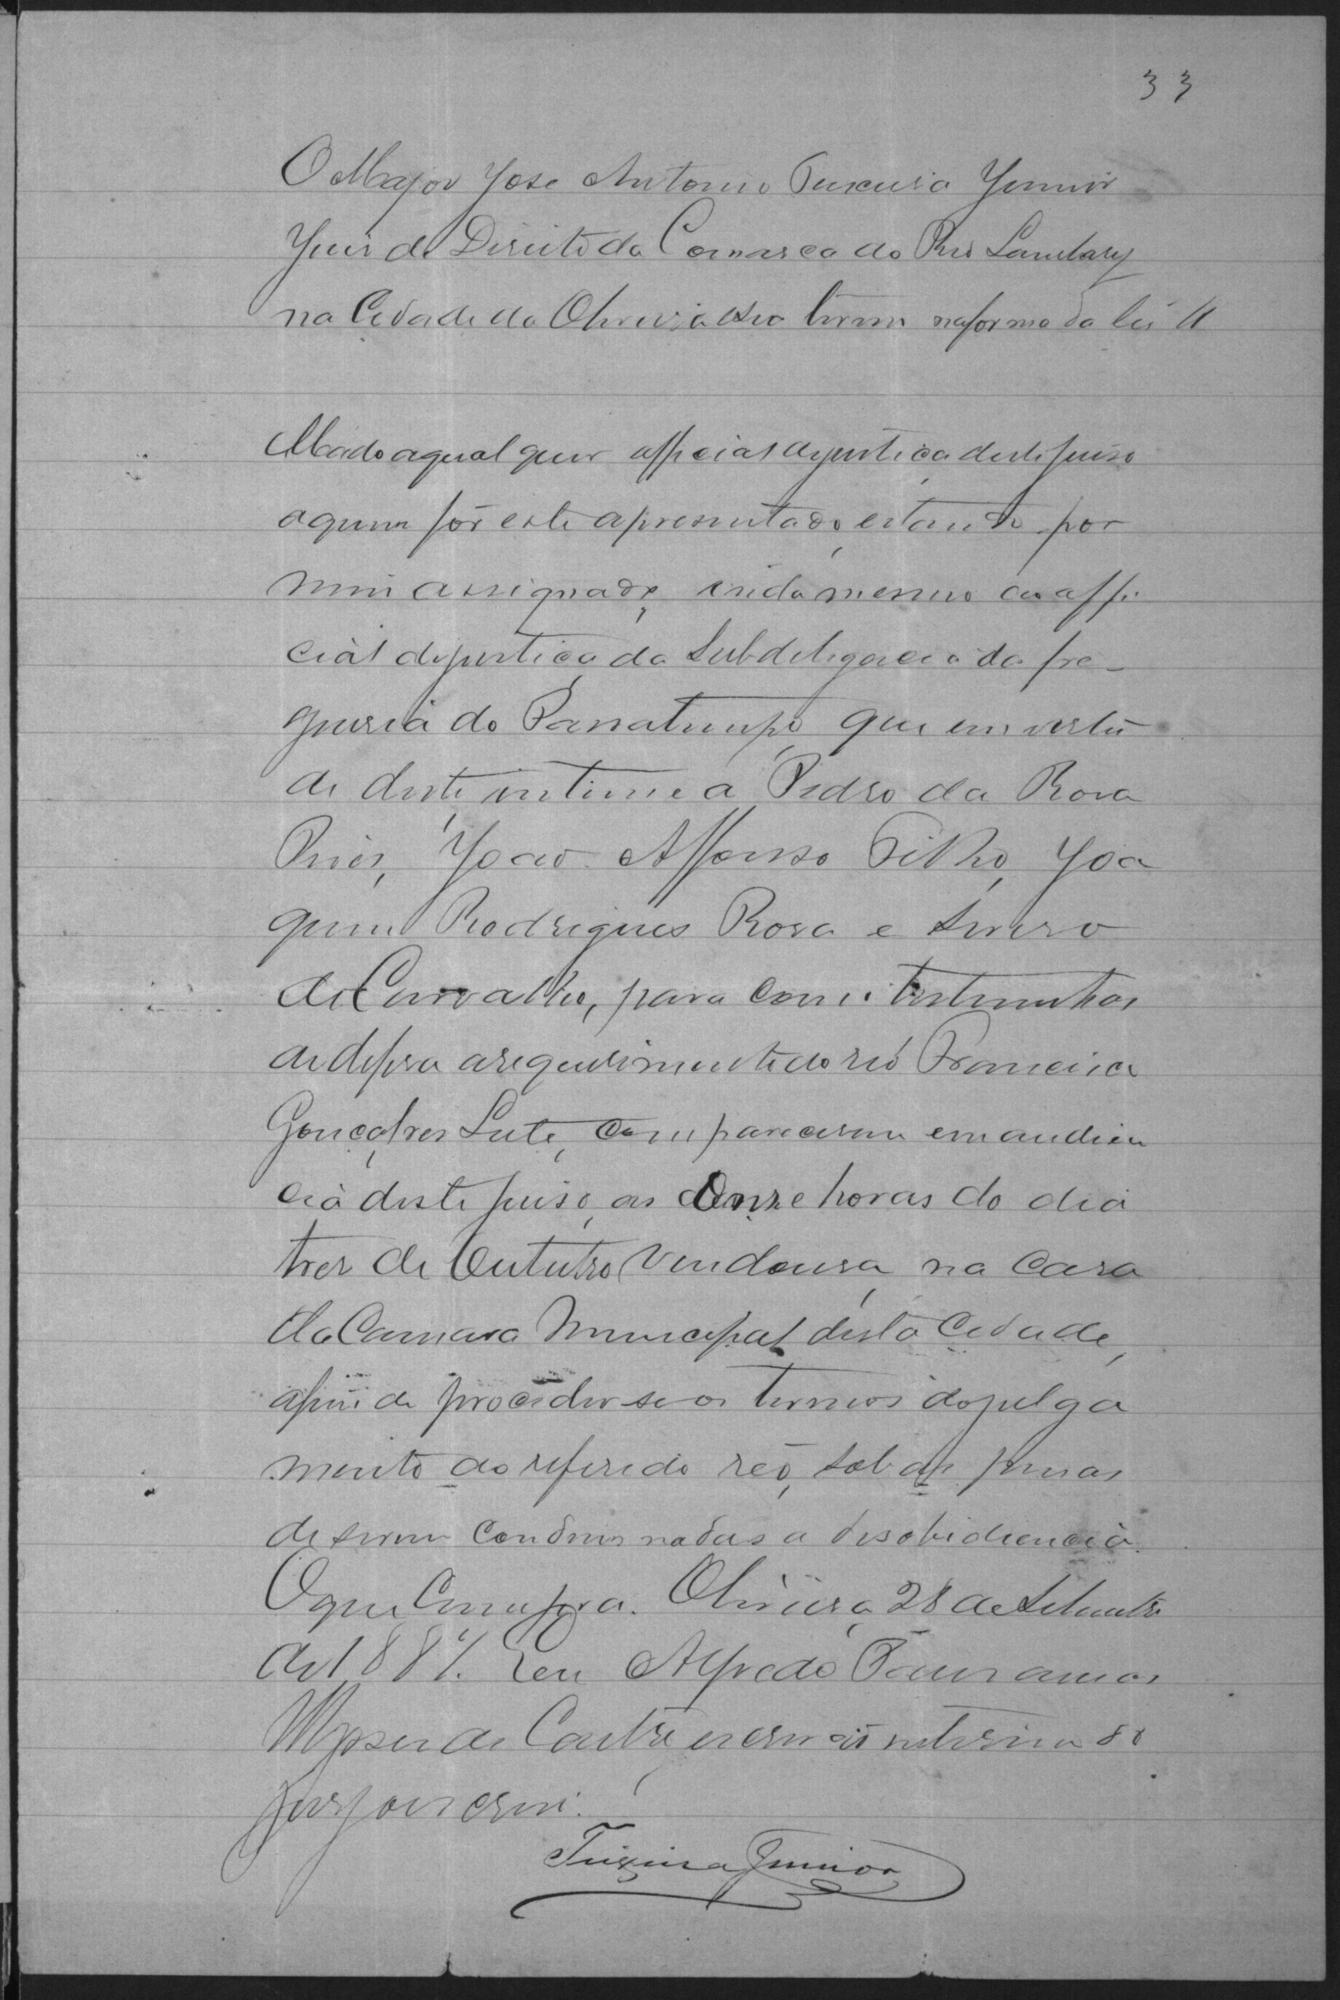 33
O Major José Antonio Teixeira Junior
Juis de Direito da Comarca do Rio Lambary
na Cidade da Oliveira seo termo na forma da lei
Mando a qual quer official de justiça deste juiso
a quem fôr este apresentado, estando por
mim assignado, inda mesmo ao offi
cial de justiça da Subdelegacia da fre-
guesia do Passatempo que em vertu
de deste, intime a Pedro da Rosa
João Affonso Filho, Joa
quim Rodrigues Rosa e
de Carvalho, para como testemunhas
de defesa a requerimento do réo Francisco
Gonçalves Leite, comparecerem em audien
cia deste juiso, as onze horas do dia
tres de Outubro vindouro, na casa
da Camara Municipal desta Cidade,
afim de proceder-se os termos do julga
mento do referido réo, sob as penas
de serem condemnadas a desobidiencia.
O que Cumpra. Oliveira 28 de Setembro
de 188 Eu Alfredo
de Castro escrivão interino do
jury o escrevi.
Teixeira Junior